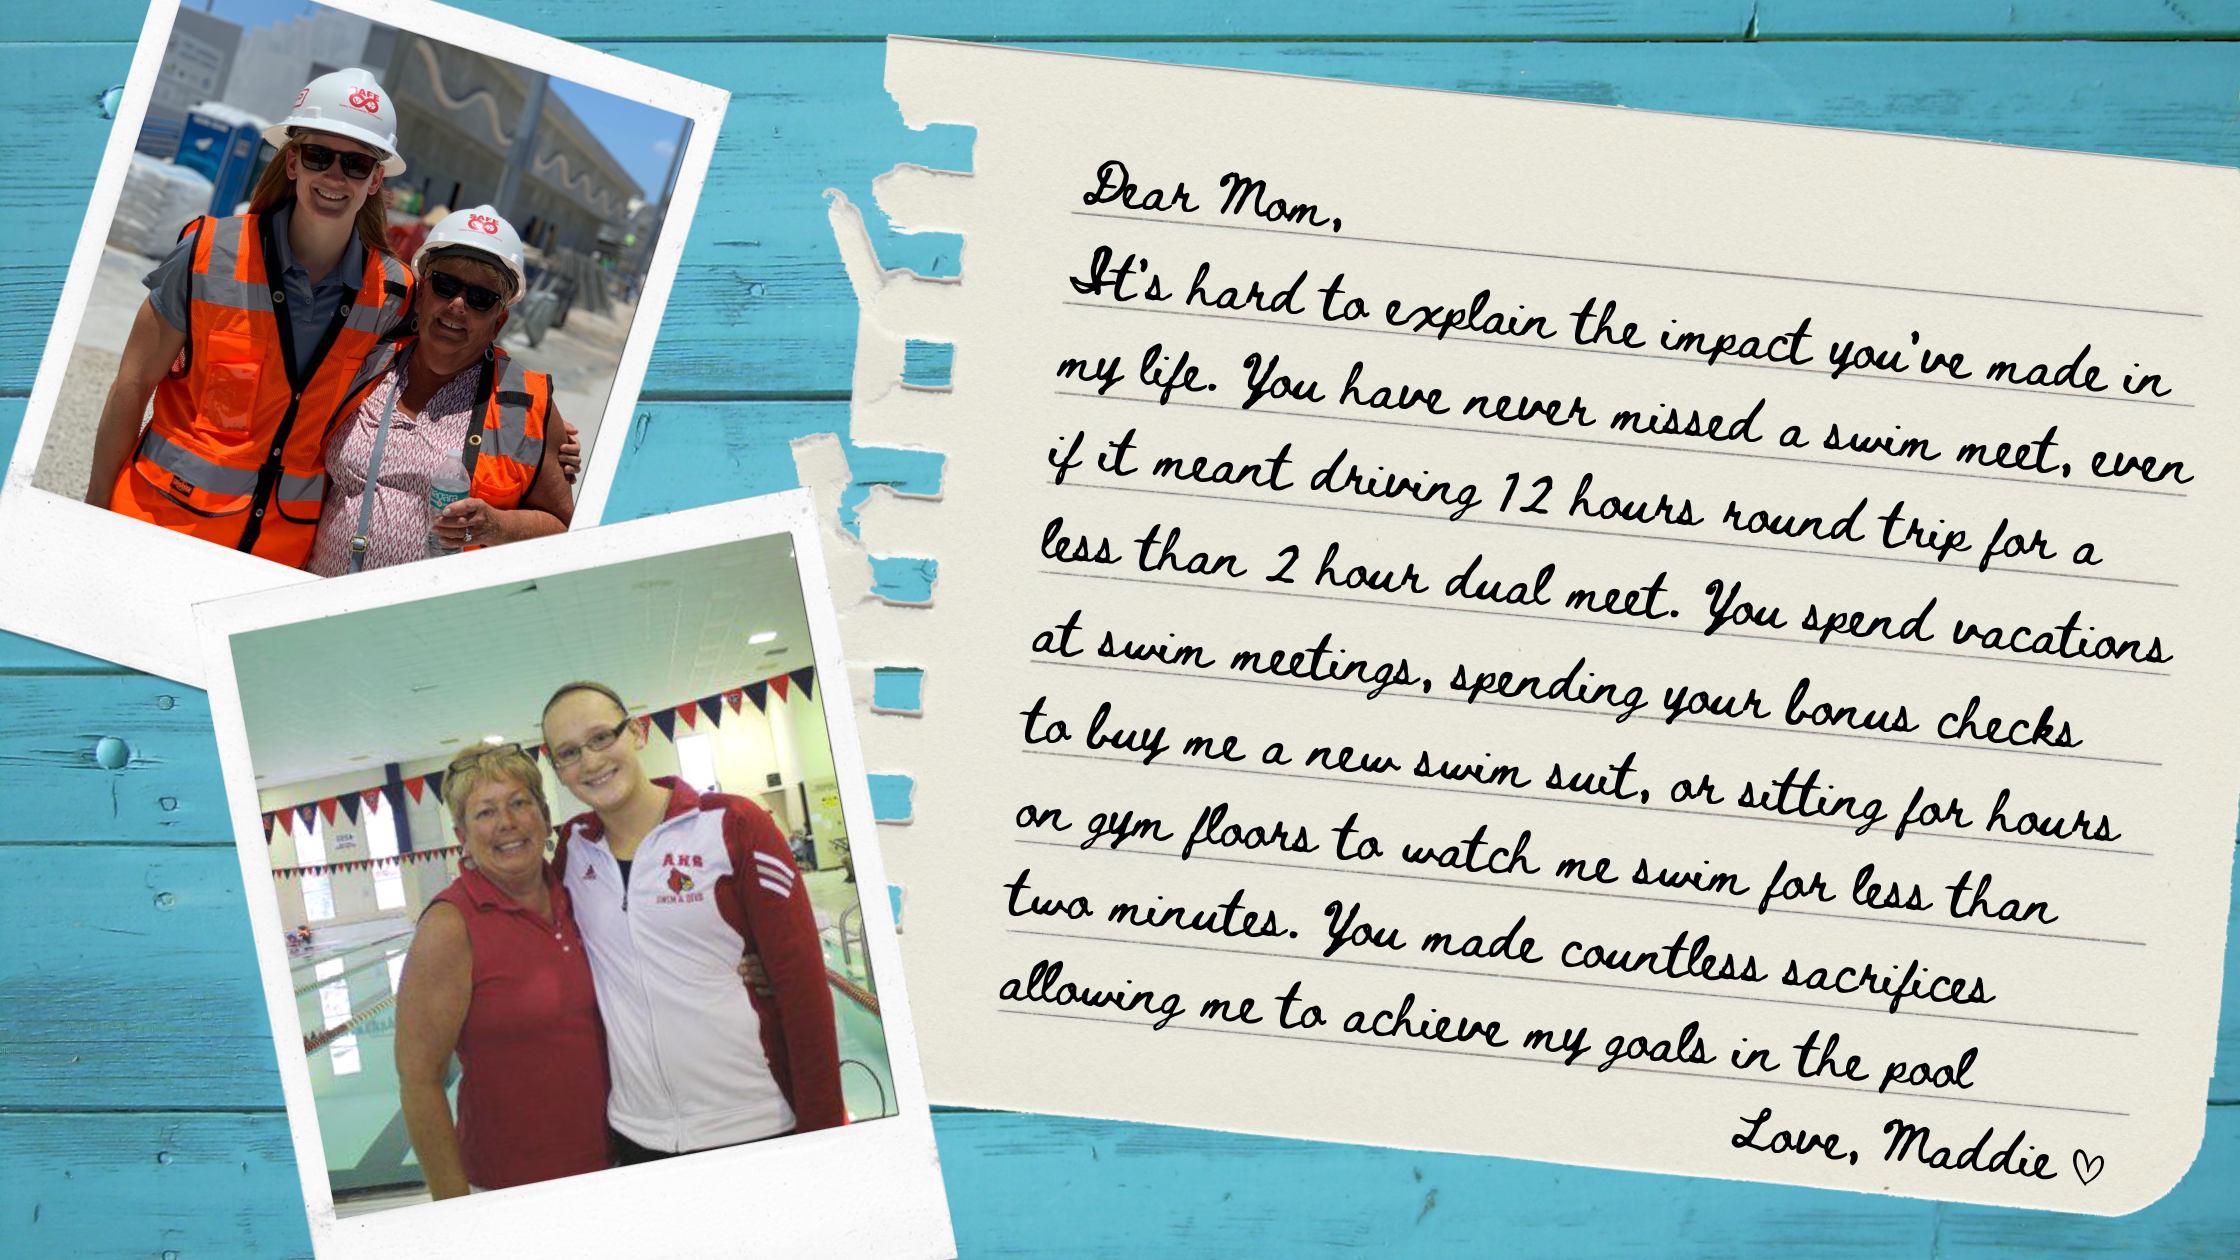 Dear Mom,
It's hard to explain the impact you've made in
my life. You have never missed a swim meet, even
if it meant driving 12 hours round trip for a
less than 2 hour dual meet. You spend vacations
at swim meetings, spending your bonus checks
to buy me a new swim suit, or sitting for hours
on gym floors to watch me swim for less than
two minutes. You made countless sacrifices
allowing me to achieve my goals in the pool
Love, Maddie ♡
SAFE
SAFE
AHS
SWIM & DIVE